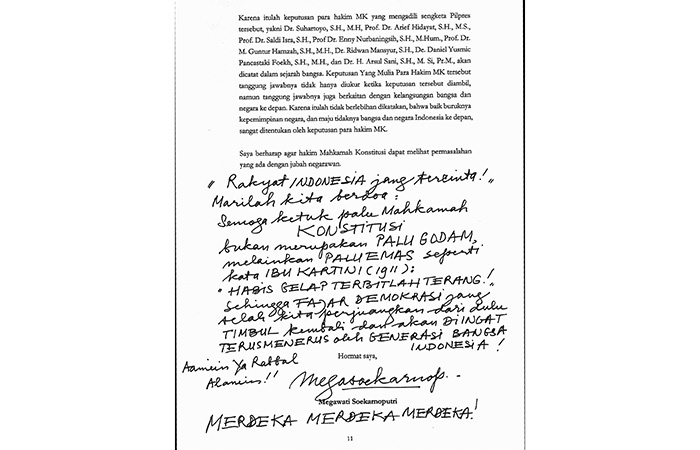 Karena itulah keputusan para hakim MK yang mengadili sengketa Pilpres
tersebut, yakni Dr. Suhartoyo, S.H., M.H, Prof. Dr. Arief Hidayat, S.H., M.S.,
Prof. Dr. Saldi Isra, S.H., Prof Dr. Enny Nurbaningsih, S.H., M.Hum., Prof. Dr.
M. Guntur Hamzah, S.H., M.H., Dr. Ridwan Mansyur, S.H., De. Daniel Yusmic
Pancastaki Foekh, S.H., M.H., dan Dr. H. Arsul Sani, S.H., M. Si, Pr.M., akan
dicatat dalam sejarah bangsa. Keputusan Yang Mulia Para Hakim MK tersebut
tanggung jawabnya tidak hanya diukur ketika keputusan tersebut diambil,
namun tanggung jawabnya juga berkaitan dengan kelangsungan bangsa dan
negara ke depan. Karena itulah tidak berlebihan dikatakan, bahwa baik buruknya
kepemimpinan negara, dan maju tidaknya bangsa dan negara Indonesia ke depan,
sangat ditentukan oleh keputusan para hakim MK.
Saya berharap agar hakim Mahkamah Konstitusi dapat melihat permasalahan
yang ada dengan jubah negarawan.
„ Rakyat INDONESIA jang tercinta! „
Marilah kita berdoa :
Semoga ketuk palu Mahkamah
KONSTITUSI
bukan merupakan PALU GODAM,
melainkan PALU EMAS seperti
kata IBU KARTINI (1911) :
" HABIS GELAP TERBITLAH TERANG! „
Sehingga FAJAR DEMOKRASI jang
telah kita perjuangkan dari dulu
TIMBUL kembali dan akan DIINGAT
TERUS MENERUS oleh GENERASI BANGSA
INDONESIA !
Aamiin Ya Rabbal
Alamin!!
Hormat saya,
Megawati Soekarnoputri
MERDEKA MERDEKA MERDEKA!
11